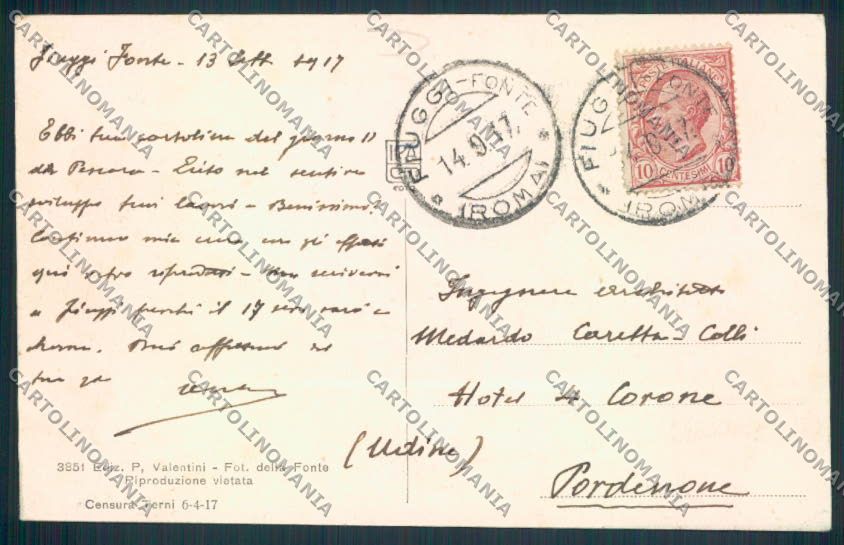 Fiuggi Fonte - 13 Sett 1917
Ebbi tua cartolina del giorno 11
da Pescara - nel sentire
sviluppo tuoi lavori - Benissimo!
Continuo mia cura con gli effetti
qui
a Fiuggi perchè il 17 sera sarò a
Roma.
tuo
3851 Ediz. P. Valentini - Fot. della Fonte
Riproduzione vietata
Censura Terni 6-4-17
FIUGGI-FONTE
14.9.17.
* (ROMA) *
POSTE ITALIANE
10 CENTESIMI 10
FIUGGI-FONTE
* (ROMA)
Ingegnere architetto
Medardo Caretta-Colli
Hotel 4 Corone
(Udine)
Pordenone
CARTOLINOMANIA